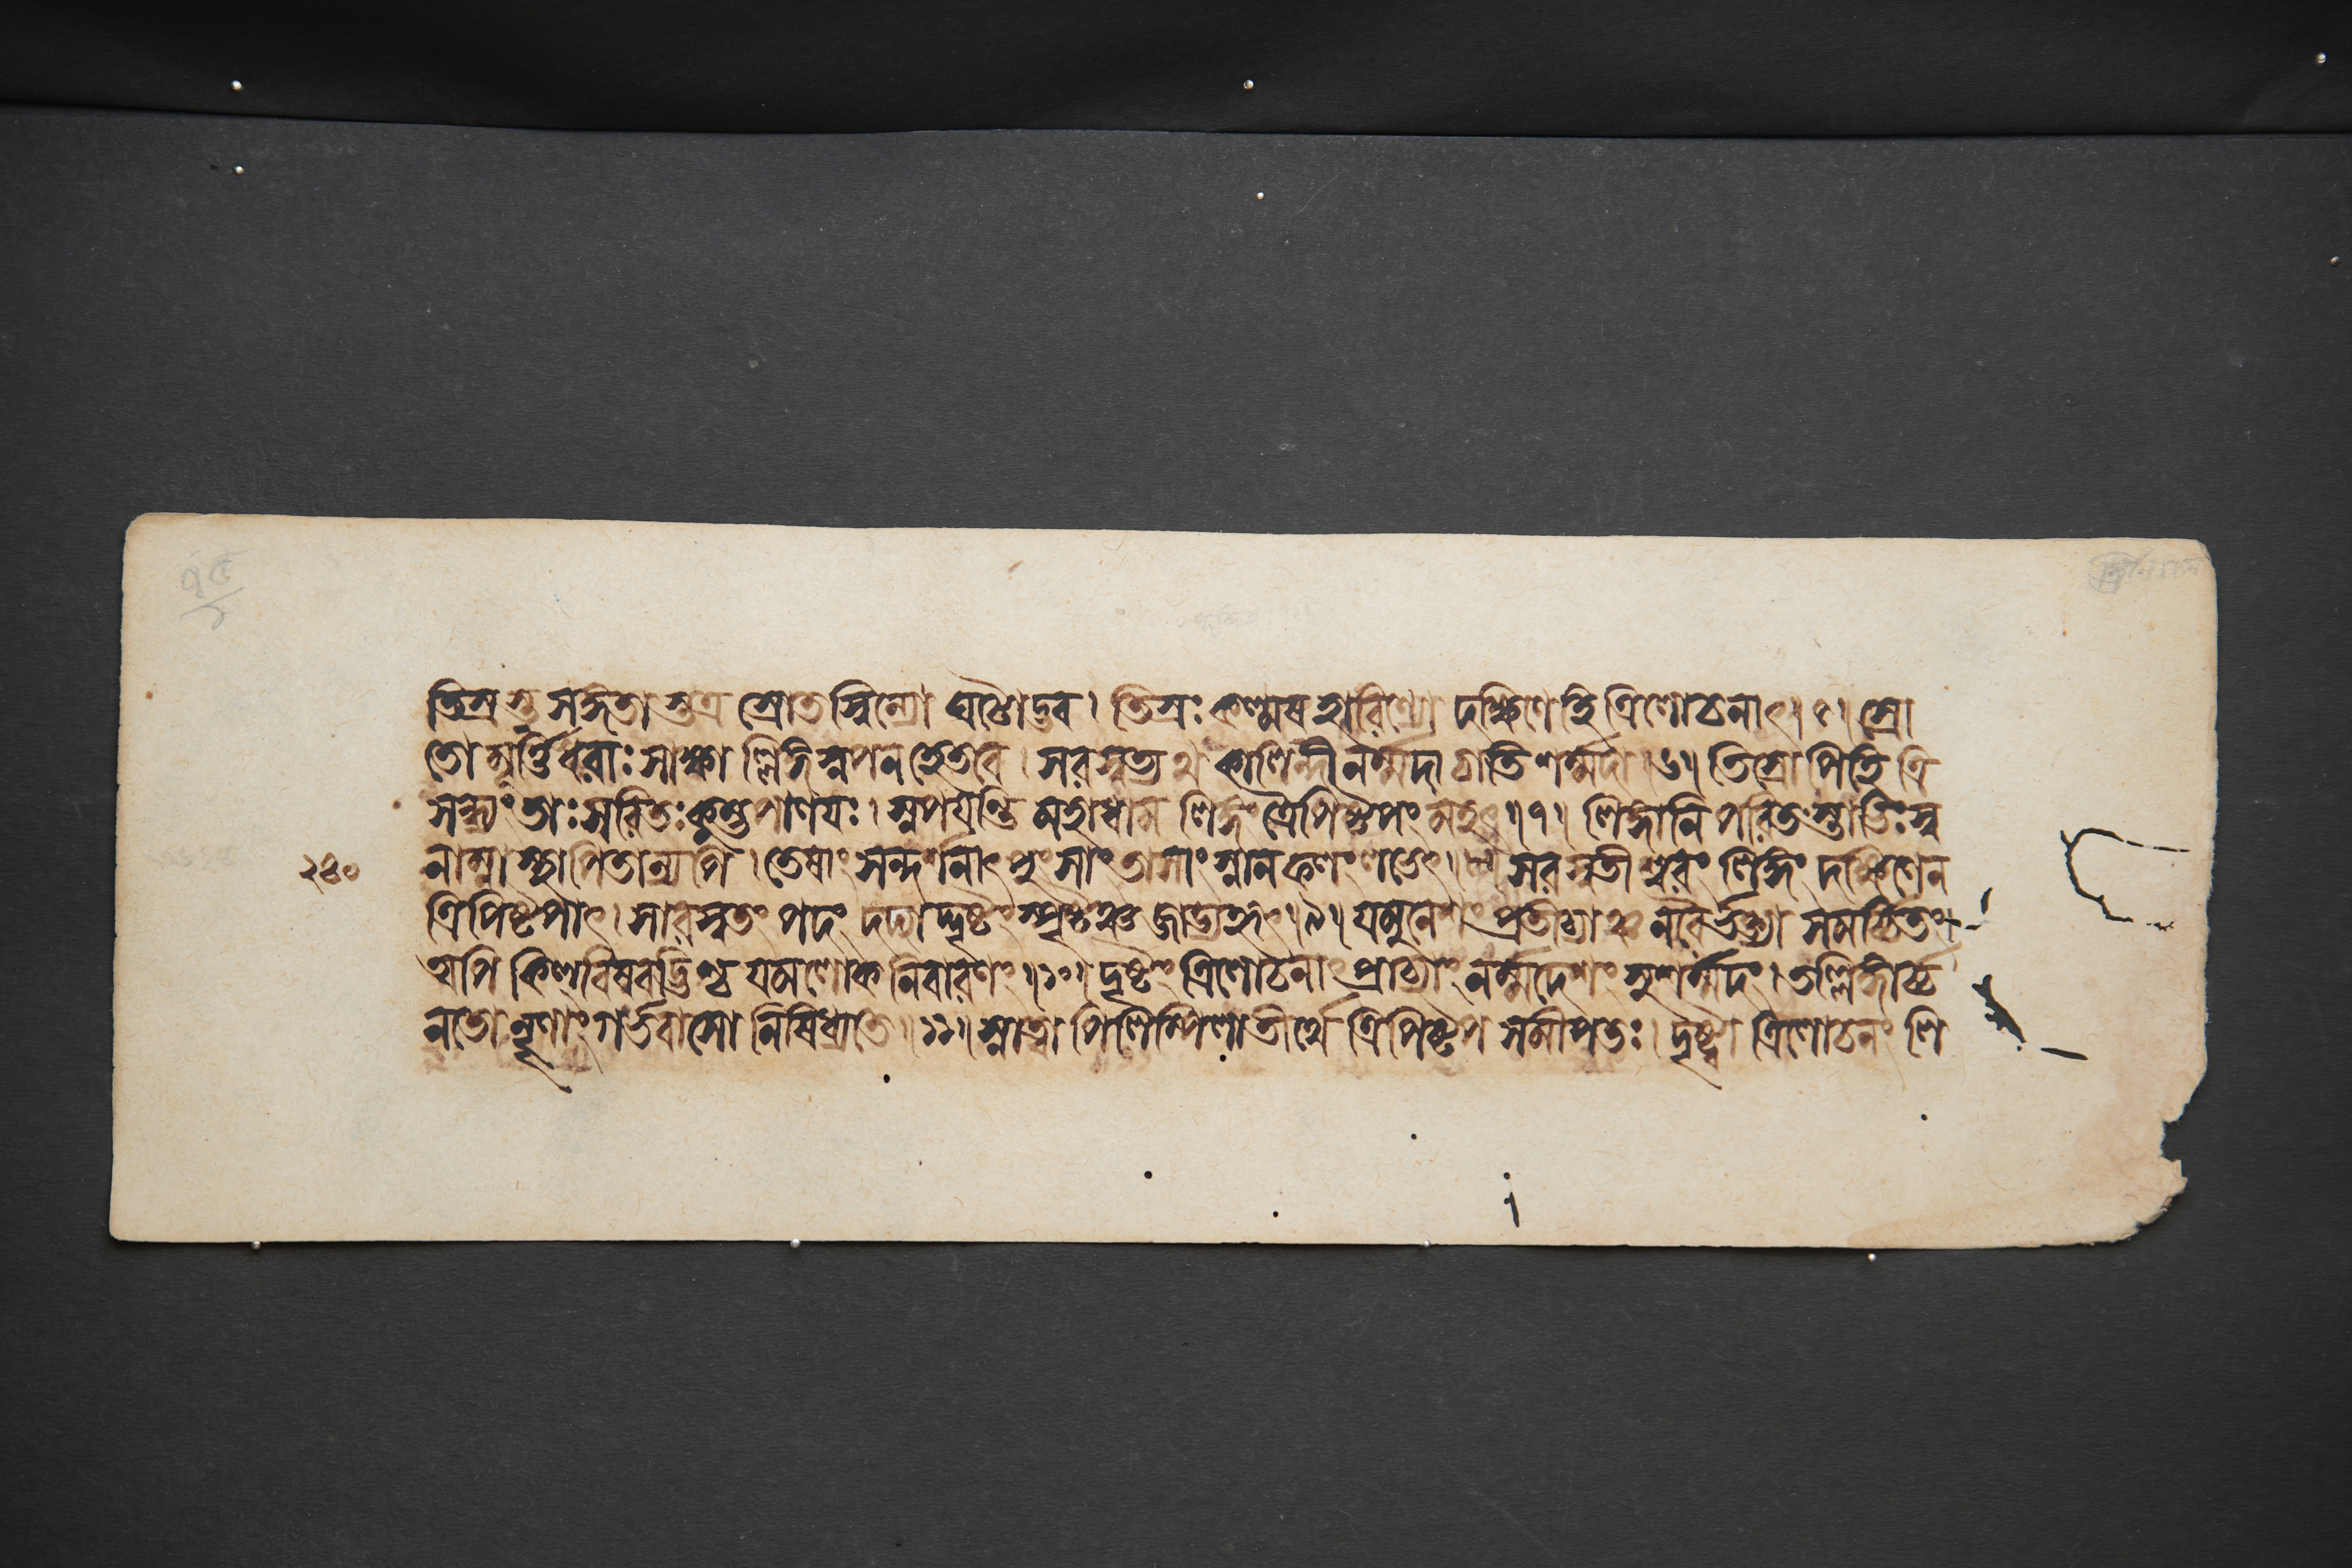 ৭৫
তিস্রস্তু সঙ্গতাস্তত্র স্রোতস্বিন্যো ঘটোদ্ভব। তিস্রঃ কল্মষহারিণ্যো দক্ষিণে হি ত্রিলোচনাৎ।৫। স্রো
তোমূর্ত্তিধরাঃ সাক্ষাল্লিঙ্গস্নপনহেতবে। সরস্বত্যথ কালিন্দী নর্ম্মদা চাতিশর্ম্মদা।৬॥ তিস্রোপিহি ত্রি
সন্ধ্যং তাঃ সরিতঃ কুম্ভপাণয়ঃ। স্নপয়ন্তি মহাধাম লিঙ্গং ত্রৈপিষ্টপং মহৎ॥৭॥ লিঙ্গানি পরিতস্তাভিঃ স্ব
২৪০
নাম্না স্থাপিতান্যপি। তেষাং সন্দর্শনাৎ পুংসাং তাসাং স্নানফলং লভেৎ॥৮॥ সরস্বতীশ্বরং লিঙ্গং দক্ষিণেন
ত্রিপিষ্টপাৎ। সারস্বতং পদং দদ্যাদ্দৃষ্টং স্পৃষ্টঞ্চ জাড্যহৃৎ।৯॥ যমুনেশং প্রতীচ্যাঞ্চ নরৈর্ভক্ত্যা সমর্চ্চিতং
অপি কিল্বিষবদ্ভিশ্চ যমলোকনিবারণং॥১০॥ দৃষ্টং ত্রিলোচনাৎ প্রাচ্যাং নর্ম্মদেশং সুশর্ম্মদং। তল্লিঙ্গার্চ্চ
নতো নৄণাং গর্ভবাসো নিষিধ্যতে॥১১॥ স্নাত্বা পিলিপ্পিলাতীর্থে ত্রিপিষ্টপসমীপতঃ। দৃষ্ট্বা ত্রিলোচনং লি